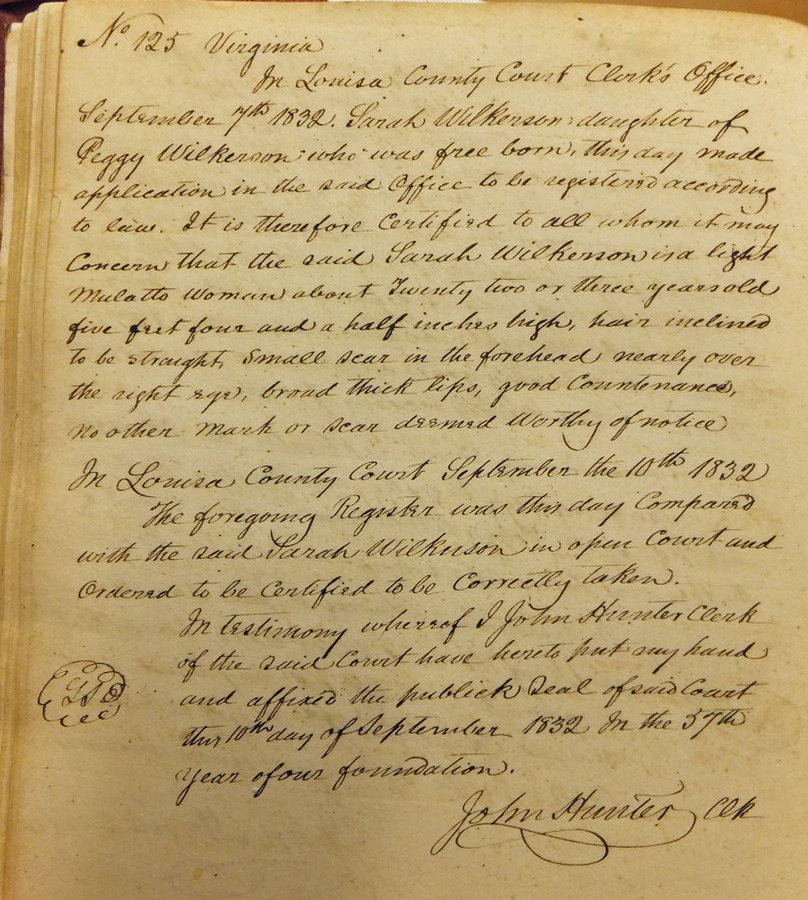 No. 125 Virginia
In Louisa County Court Clerk's Office.
September 7th 1832. Sarah Wilkerson daughter of
Peggy Wilkerson who was free born, this day made
application in the said Office to be registered according
to law. It is therefore Certified to all whom it may
Concern that the said Sarah Wilkerson is a light
Mulatto Woman about Twenty two or three years old
five feet four and a half inches high, hair inclined
to be straight, Small scar in the forehead nearly over
the right eye, broad thick lips, good Countenance,
no other mark or scar deemed Worthy of notice
In Louisa County Court September the 10th 1832
The foregoing Register was this day Compared
with the said Sarah Wilkerson in open Court and
Ordered to be Certified to be Correctly taken.
In testimony whereof I John Hunter Clerk
of the said Court have hereto put my hand
and affixed the publick Seal of said Court
this 10th day of September 1832 In the 57th
Year of our foundation.
John Hunter Clk